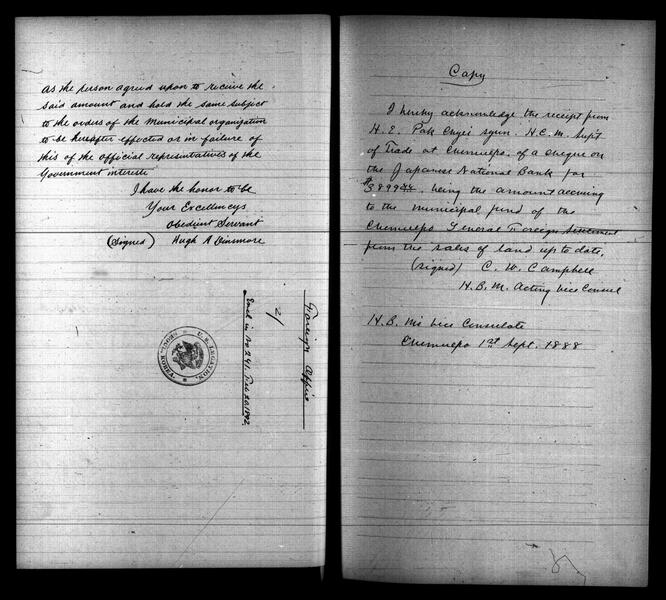 as the person agreed upon to receive the
said amount and hold the same subject
to the orders of the Municipal organization
to be hereafter effected or in failure of
this of the official representatives of the
Government interest
I have the honor to be
Your Excellencys
Obedient Servant
(Signed) Hugh A Dinsmore
Foreign Office
2/
Encl in No 241. Dec 20 1892.
U.S. LEGATION,
SEOUL, KOREA.
Copy
I hereby acknowledge the receipt from
H.E. Pak Chyei syun. H.C.M. Supt
of Trade at Chemulpo, of a cheque on
the Japanese National Bank for
$3899 being the amount accruing
to the municipal fund of the
Chemulpo General Foreign Settlement
from the sales of land up to date,
(signed) C. W. Campbell
H.B.M. Acting Vice Consul
H.B.Ms Vice Consulate
Chemulpo 1st Sept. 1888